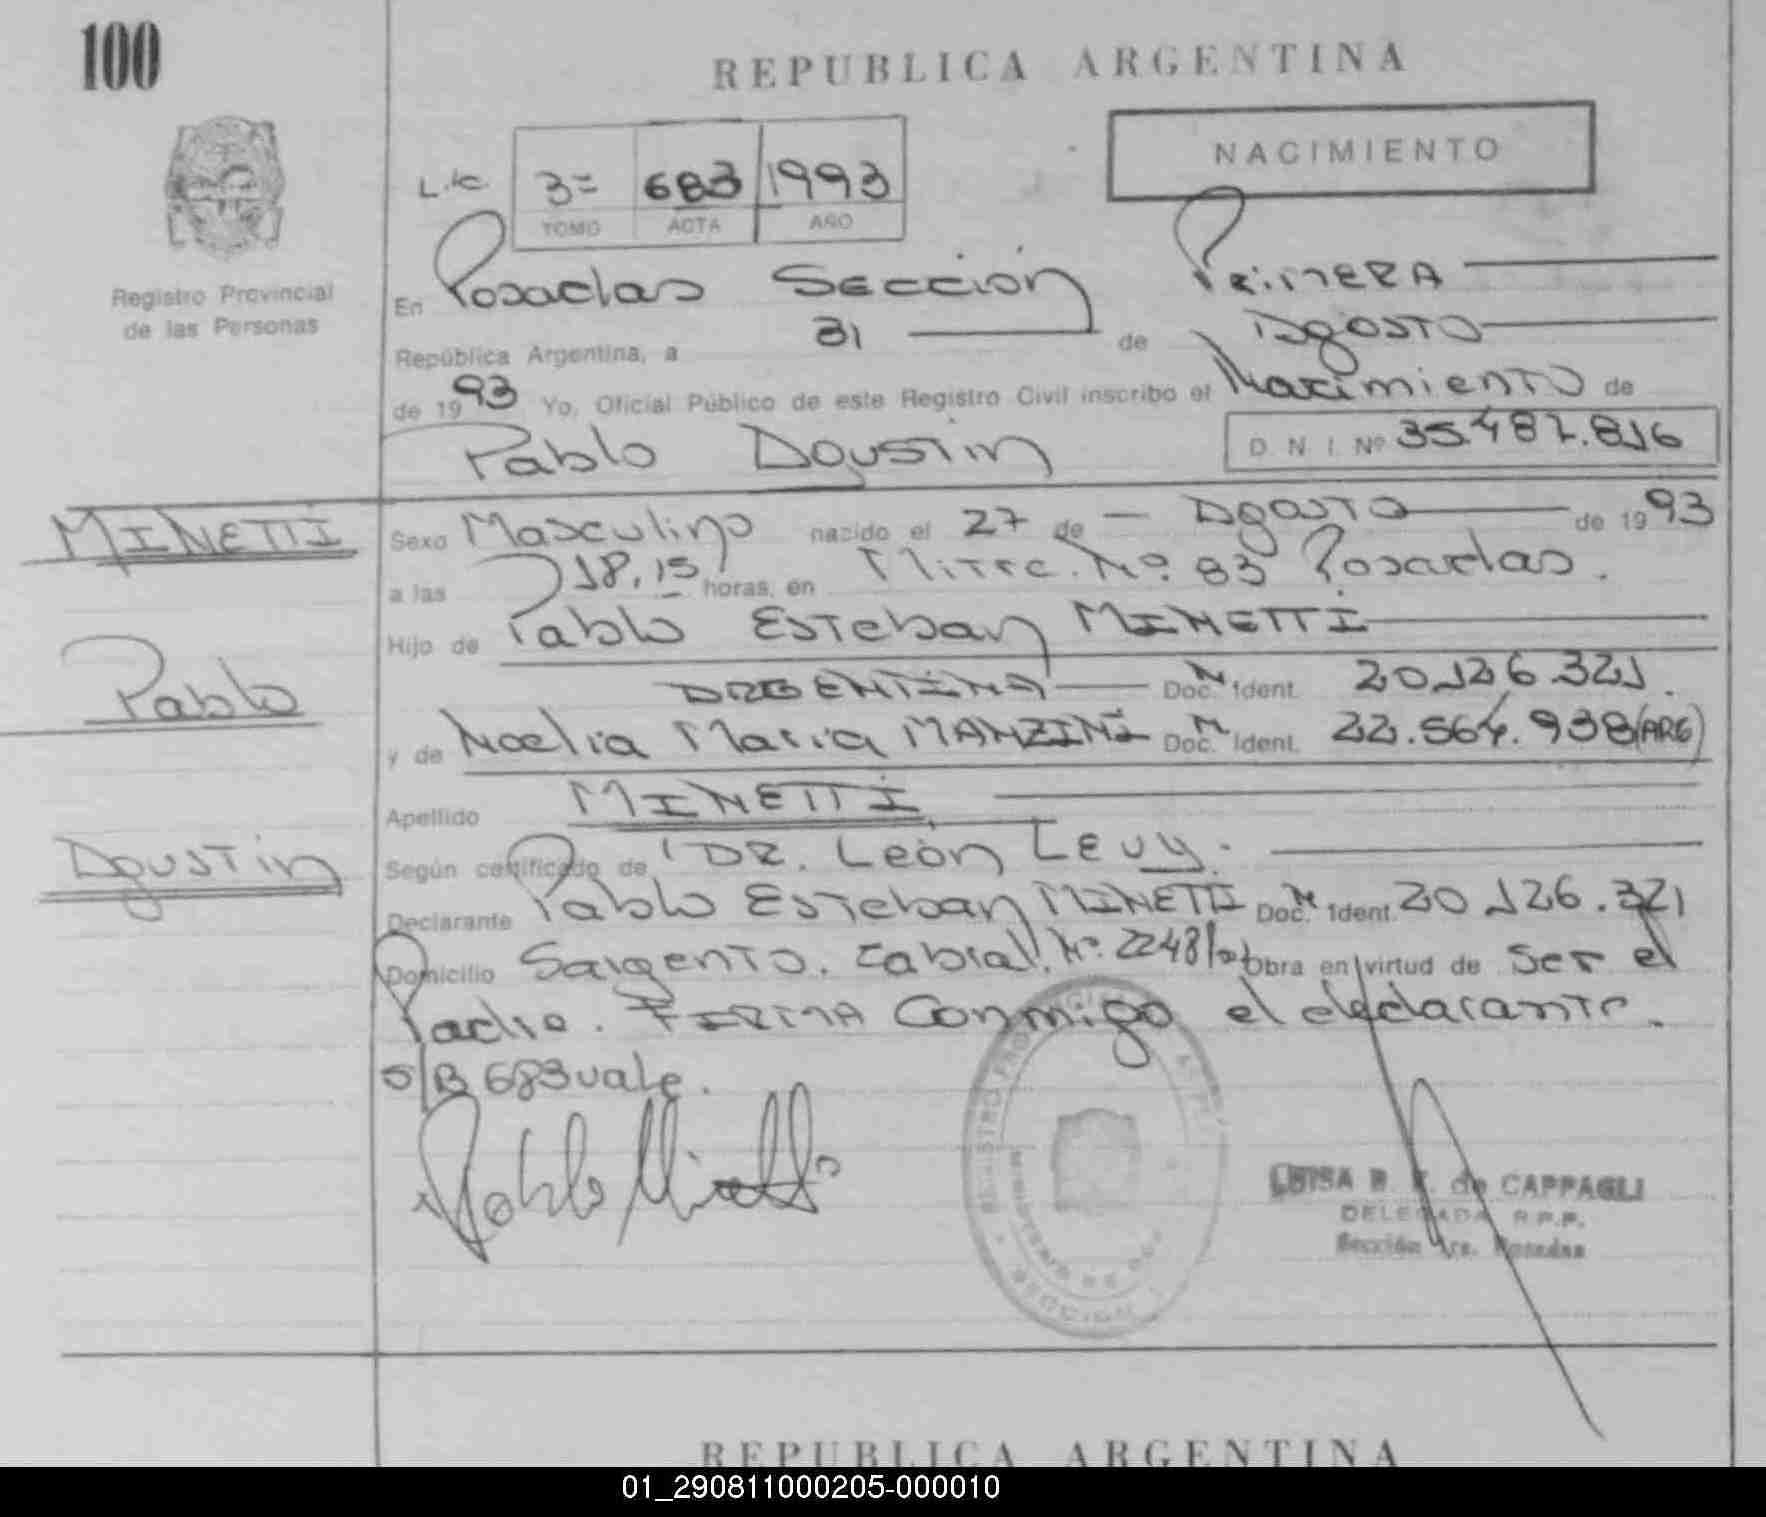 100
REPUBLICA ARGENTINA
NACIMIENTO
L.ic. 3= 683 1993
TOMO ACTA AÑO
Registro Provincial
de las Personas
En Posadas Sección Primera
República Argentina, a 31 de Agosto
de 1993 Yo, Oficial Público de este Registro Civil inscribo el Nacimiento de
Pablo Agustin D. N. I. Nº 35.487.816
MINETTI
Sexo Masculino nacido el 27 de Agosto de 1993
a las 18,15 horas, en Mitre. Nº. 83 Posadas.
Hijo de Pablo Esteban MINETTI
Pablo
ARGENTINA Doc. N Ident. 20.126.321.
y de Noelia Maria MANZINI Doc. N Ident. 22.564.938 (ARG)
Apellido MINETTI
Agustin
Según certificado de DR. León Levy.
Declarante Pablo Esteban MINETTI Doc. N Ident. 20.126.321
Domicilio Sargento. Cabral. Nº. 2248 Obra en virtud de Ser el
Padre. FIRMA Conmigo el declarante.
S/B 683 vale.
REGISTRO
MINISTERIO DE
SECCION
LUISA de CAPPAGLI
DELEGADA R.P.P.
Sección 1ra. Posadas
REPUBLICA ARGENTINA
01_290811000205-000010